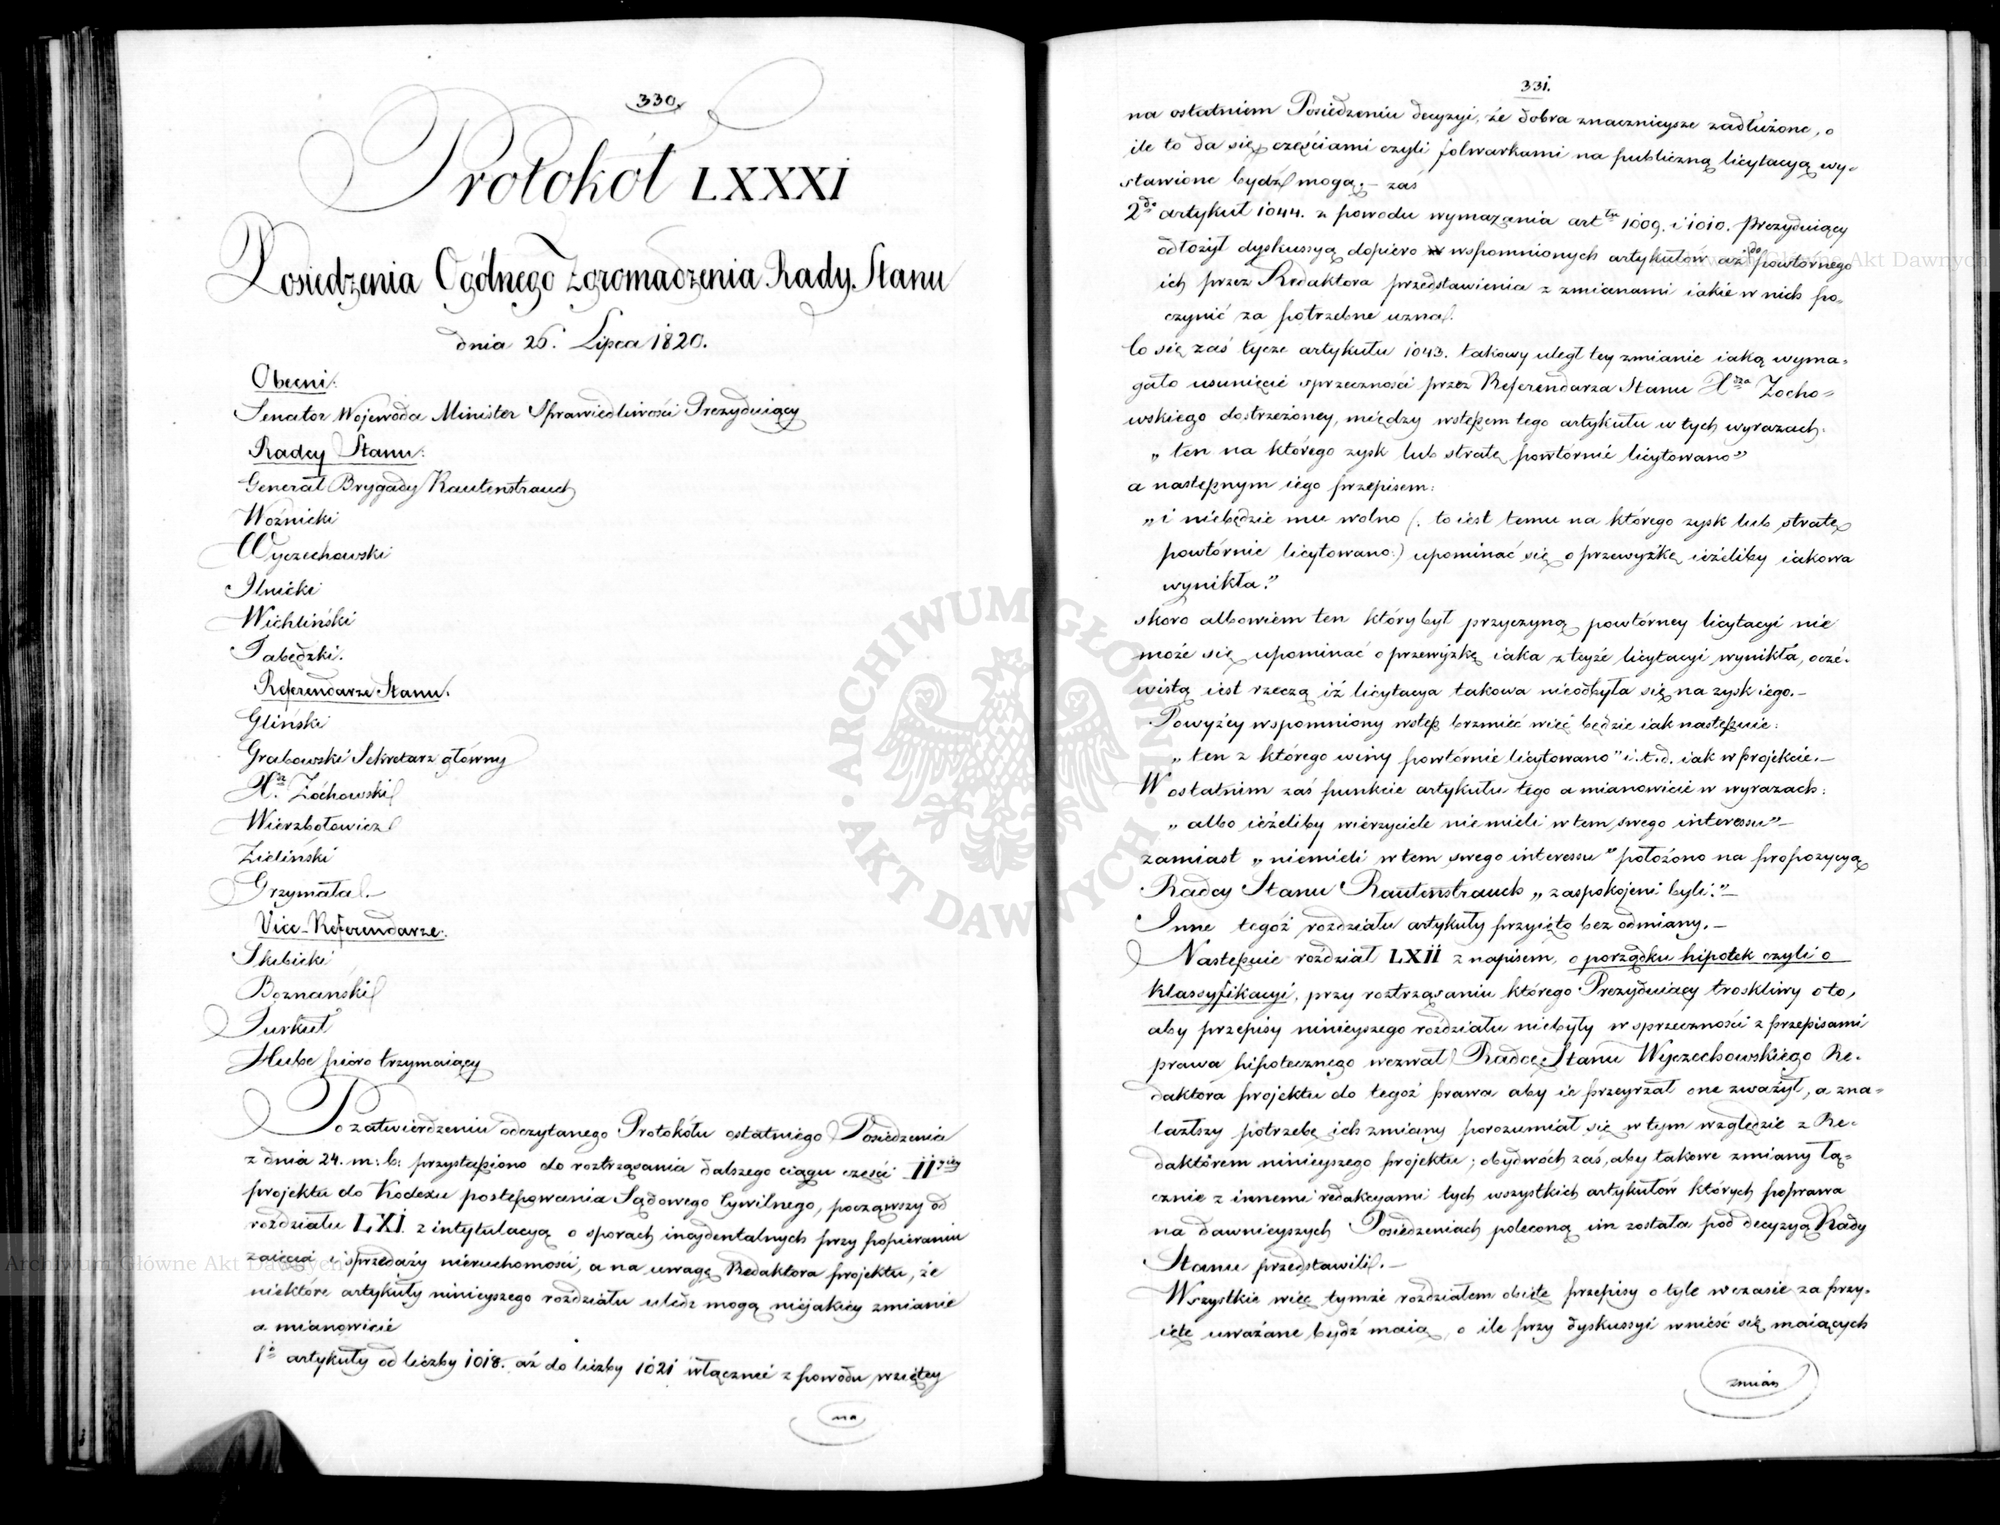 330.
Protokół LXXXI
Posiedzenia Ogólnego Zgromadzenia Rady Stanu
dnia 26. Lipca 1820.
Obecni:
Senator Wojewoda Minister Sprawiedliwości Prezyduiący
Radcy Stanu:
Generał Brygady Rautenstrauch
Woźnicki
Wyczechowski
Ilnicki
Wichliński
Tabędzki.
Referendarze Stanu.
Gliński
Grabowski Sekretarz główny
Xdz Żochowski
Wierzbołowicz
Zieliński
Grzymała.-
Vice-Referendarze.
Skibicki
Boznański
Turkuł
Hube pióro trzymaiący
Po zatwierdzeniu odczytanego Protokółu ostatniego Posiedzenia
z dnia 24. m: b: przystąpiono do roztrząsania dalszego ciągu części IIgiéy
projektu do Kodexu postępowania Sądowego Cywilnego, począwszy od
rozdziału LXI. z intytulacyą o sporach incydentalnych przy popieraniu
zaięcia i sprzedaży nieruchomości, a na uwagę Redaktora projektu, że
niektóre artykuły ninieyszego rozdziału uledz mogą niejakiey zmianie
a mianowicie
1o artykuły od liczby 1018. aż do liczby 1021 włącznie z powodu wziętey
na
331.
na ostatniem Posiedzeniu decyzyi, że dobra znacznieysze zadłużone, o
ile to da się częściami czyli folwarkami na publiczną licytacyą wy-
stawione bydź mogą.- zaś
2do artykuł 1044. z powodu wymazania artłu 1009. i 1010. Prezyduiący
odłożył dyskussyą dopiero wspomnionych artykułów aż do powtórnego
ich przez Redaktora przedstawienia z zmianami iakie w nich po-
czynić za potrzebne uzna.
Co się zaś tycze artykułu 1043. takowy uległ tey zmianie iaką wyma-
gało usunięcie sprzeczności przez Referendarza Stanu Xdza Żocho-
wskiego dostrzeżoney, między wstępem tego artykułu w tych wyrazach:
„ten na którego zysk lub stratę powtórnie licytowano"
a następnym iego przepisem:
„i niebędzie mu wolno (: to iest temu na którego zysk lub stratę
powtórnie licytowano:) upominać się o przewyżkę ieżeliby iakowa
wynikła."
skoro albowiem ten który był przyczyną powtórney licytacyi nie
może się upominać o przewyżkę iaka z teyże licytacyi wynikła, oczé-
wistą iest rzeczą iż licytacya takowa nieodbyła się na zysk iego.-
Powyżey wspomniony wstęp brzmieć więc będzie iak następuie:
„ten z którego winy powtórnie licytowano" i.t.d. iak w projekcie.-
W ostatnim zaś punkcie artykułu tego a mianowicie w wyrazach:
„albo ieżeliby wierzyciele nie mieli w tem swego interessu"-
zamiast „niemieli w tem swego interessu" położono na propozycyą
Radcy Stanu Rautenstrauch „zaspokojeni byli."-
Inne tegóż rozdziału artykuły przyięto bez odmiany.-
Następuie rozdział LXII z napisem, o porządku hipotek czyli o
klassyfikacyi, przy roztrząsaniu którego Prezyduiący troskliwy o to,
aby przepisy ninieyszego rozdziału niebyły w sprzeczności z przepisami
prawa hipotecznego wezwał Radcę Stanu Wyczechowskiego Re-
daktora projektu do tegoż prawa aby ie przeyrzał one zważył, a zna-
lazłszy potrzebę ich zmiany porozumiał się w tym względzie z Re-
daktorem ninieyszego projektu; obydwóch zaś, aby takowe zmiany łą-
cznie z innemi redakcyami tych wszystkich artykułów których poprawa
na dawnieyszych Posiedzeniach poleconą im została pod decyzyą Rady
Stanu przedstawili.-
Wszystkie więc tymże rozdziałem obięte przepisy o tyle wczasie za przy-
ięte uważane bydź maią, o ile przy dyskussyi wnieść się maiących
zmian
ARCHIWUM GŁÓWNE AKT DAWNYCH
Archiwum Główne Akt Dawnych
Archiwum Główne Akt Dawnych